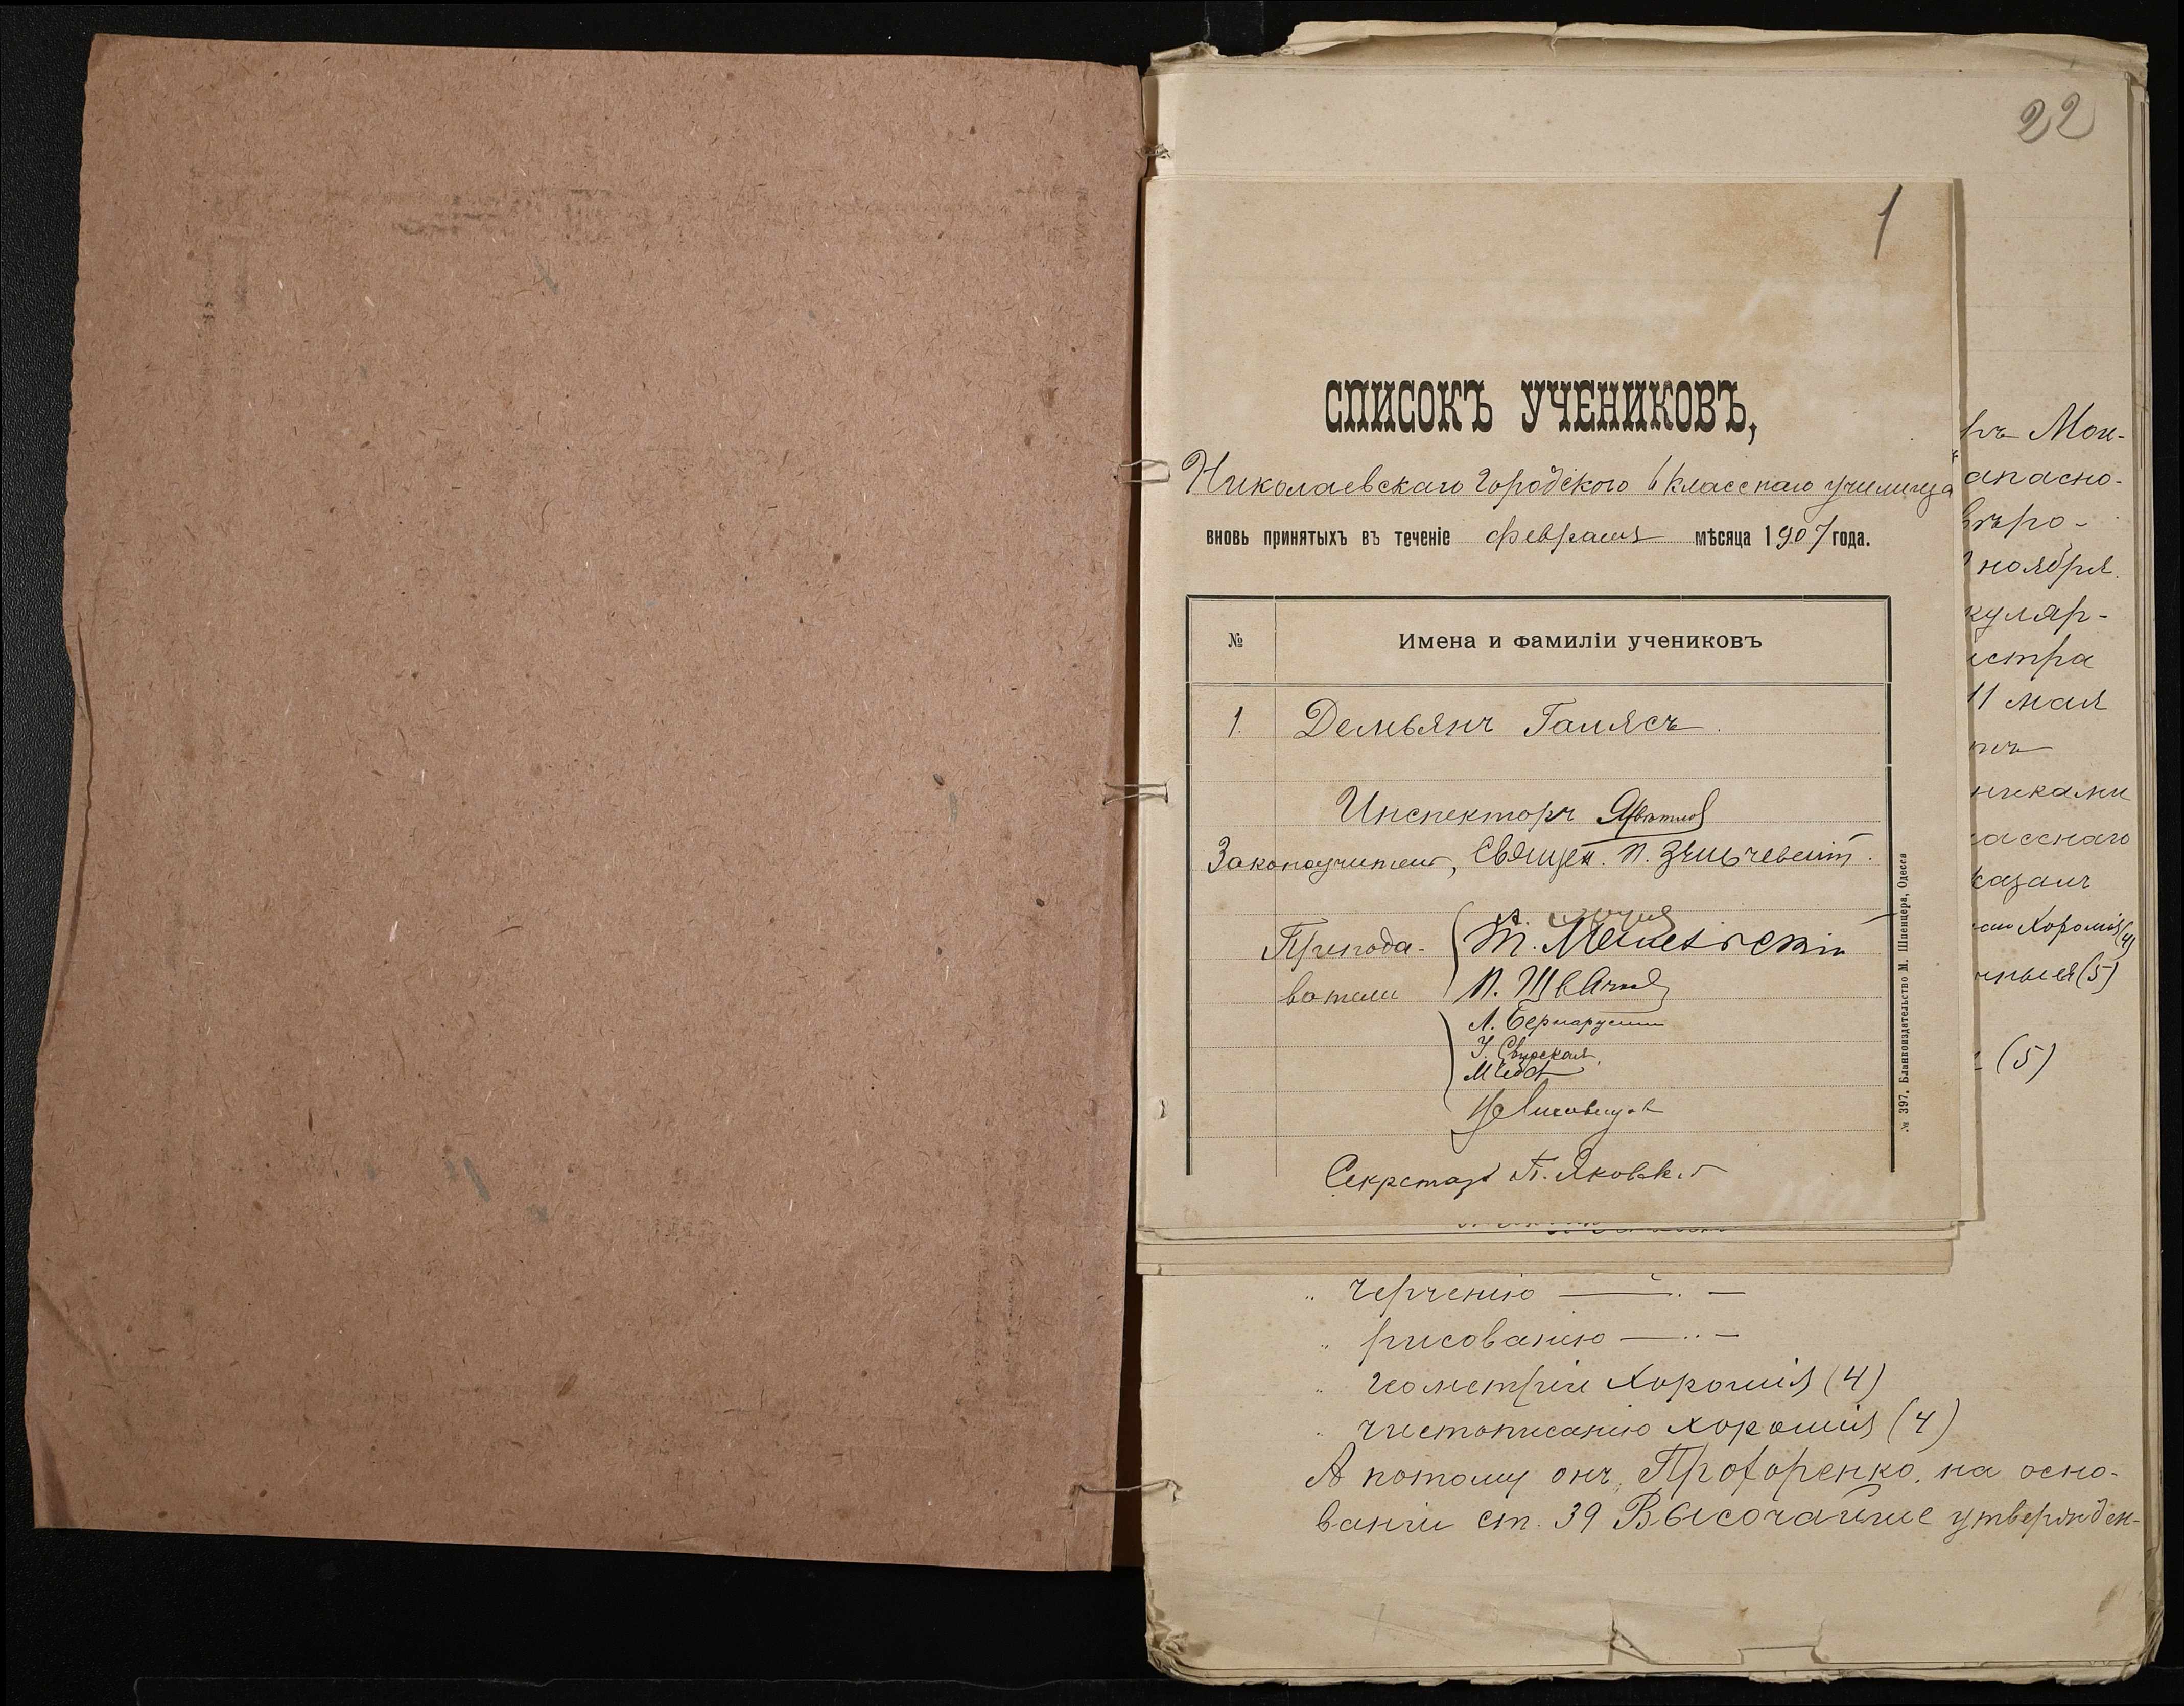 22
1
СПИСОКЪ УЧЕНИКОВЪ,
Николаевскаго Городского 6 класснаго училища
вновь принятыхъ въ теченіе февраля мѣсяца 1907 года.
№ Имена и фамиліи учениковъ
1. Демьянъ Галясъ.
Инспекторъ
Законоучитель, Священ. П.
Препода-
ватели
П.
Л.
Секретарь П.
№ 397. Бланкоиздательство М. Шпенцера, Одесса
ръ Мон-
апасно-
ѣро-
ноября
куляр-
истра
11 мая
никами
асснаго
казалъ
Хорошія (4)
ныя (5)
(5)
„ черченію — „ —
„ рисованію — „ —
„ геометріи Хорошія (4)
„ чистописанію хорошія (4)
А потому онъ, Прохоренко, на осно-
ваніи ст. 39 Высочайше утвержден-